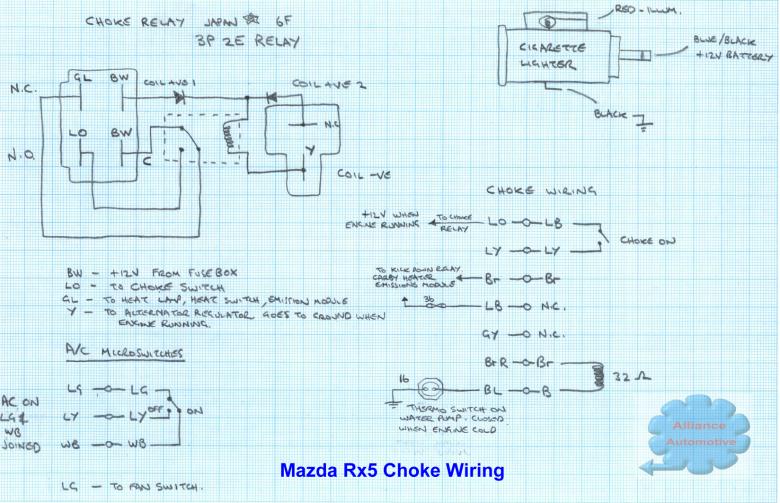 CHOKE RELAY JAPAN 6F
3P 2E RELAY
RED - ILLUM.
CIGARETTE
LIGHTER
BLUE/BLACK
+12V BATTERY
BLACK
N.C.
GL BW
COIL +VE 1
COIL +VE 2
N.C
LO BW
N.O.
C
Y
COIL -VE
CHOKE WIRING
+12V WHEN
ENGINE RUNNING
TO CHOKE
RELAY
LO LB
CHOKE ON
LY LY
TO KICK DOWN RELAY
CARBY HEATER
EMISSIONS MODULE
Br Br
3b
LB N.C.
GY N.C.
BrR Br
32 Ω
16
BL B
THERMO SWITCH ON
WATER PUMP. CLOSED
WHEN ENGINE COLD
BW - +12V FROM FUSEBOX
LO - TO CHOKE SWITCH
GL - TO HEAT LAMP, HEAT SWITCH, EMITION MODULE
Y - TO ALTERNATOR REGULATOR GOES TO GROUND WHEN
ENGINE RUNNING.
A/C MICROSWITCHES
LG LG
AC ON
LG &
WB
JOINED
LY LY OFF ON
WB WB
LG - TO FAN SWITCH.
Alliance
Automotive
Mazda Rx5 Choke Wiring